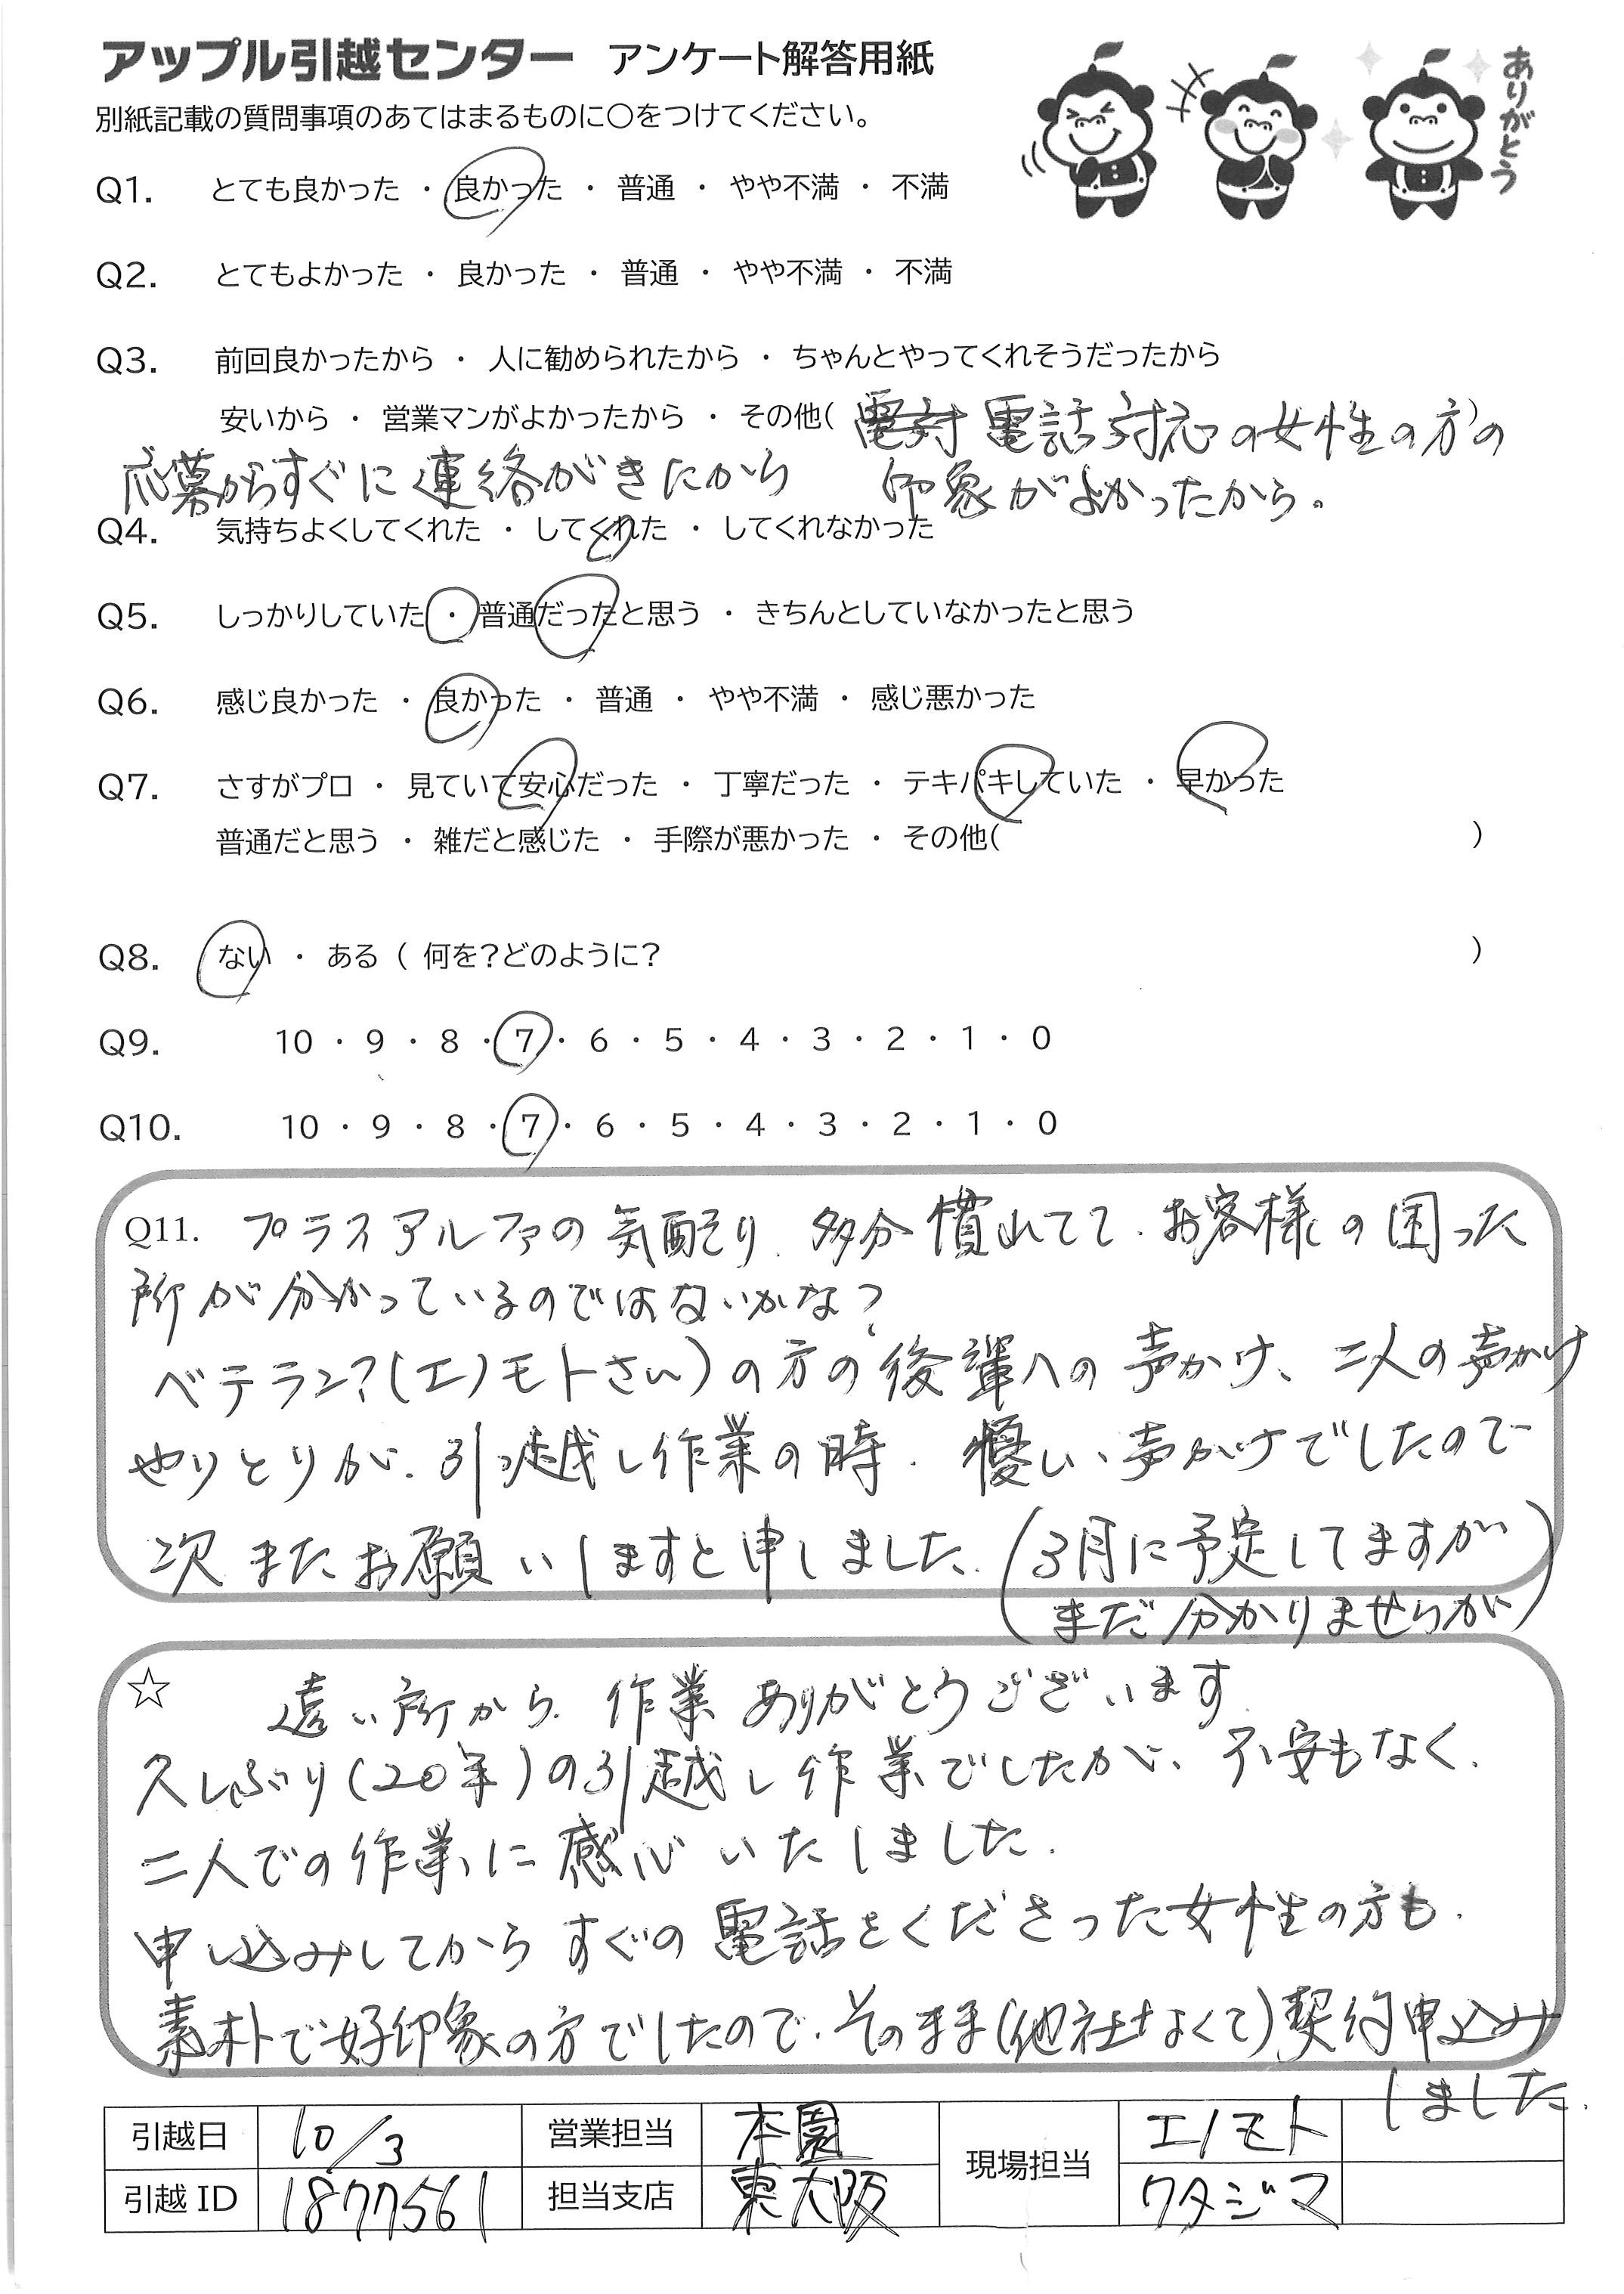 アップル引越センター アンケート解答用紙
ありがとう
別紙記載の質問事項のあてはまるものに○をつけてください。
Q1. とても良かった ・ 良かった ・ 普通 ・ やや不満 ・ 不満
Q2. とてもよかった ・ 良かった ・ 普通 ・ やや不満 ・ 不満
Q3. 前回良かったから ・ 人に勧められたから ・ ちゃんとやってくれそうだったから
安いから ・ 営業マンがよかったから ・ その他( 電話対応の女性の方の
応募からすぐに連絡がきたから 印象がよかったから。
Q4. 気持ちよくしてくれた ・ してくれた ・ してくれなかった
Q5. しっかりしていた ・ 普通だったと思う ・ きちんとしていなかったと思う
Q6. 感じ良かった ・ 良かった ・ 普通 ・ やや不満 ・ 感じ悪かった
Q7. さすがプロ ・ 見ていて安心だった ・ 丁寧だった ・ テキパキしていた ・ 早かった
普通だと思う ・ 雑だと感じた ・ 手際が悪かった ・ その他( )
Q8. ない ・ ある ( 何を?どのように? )
Q9. 10 ・ 9 ・ 8 ・ 7 ・ 6 ・ 5 ・ 4 ・ 3 ・ 2 ・ 1 ・ 0
Q10. 10 ・ 9 ・ 8 ・ 7 ・ 6 ・ 5 ・ 4 ・ 3 ・ 2 ・ 1 ・ 0
Q11. プラスアルファの気配り、多分慣れてて、お客様の困った
所が分かっているのではないかな?
ベテラン?(エノモトさん)の方の後輩への声かけ、二人の声かけ
やりとりが、引っ越し作業の時、優しい声がけでしたので
次またお願いしますと申しました。(3月に予定してますが
まだ分かりませんが)
☆ 遠い所から、作業ありがとうございます。
久しぶり(20年)の引越し作業でしたが、不安もなく、
二人での作業に感心いたしました。
申し込みしてからすぐの電話をくださった女性の方も、
素朴で好印象の方でしたので、そのまま(他社なくて)契約申込み
しました。
引越日 10/3 営業担当 本園 現場担当 エノモト
引越ID 1877561 担当支店 東大阪 ワタジマ